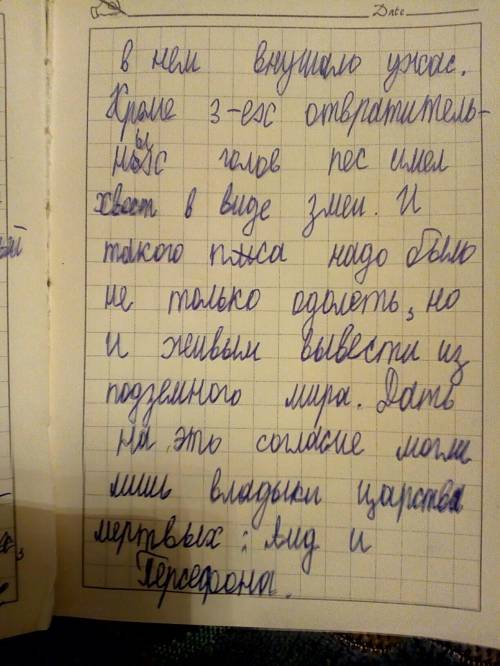 Date
в нем внушало ужас.
Кроме 3-ех отвратитель-
ных голов пес имел
хвост в виде змеи. И
такого пса надо было
не только одолеть, но
и живым вывести из
подземного мира. Дать
на это согласие могли
лишь владыки царства
мертвых: Аид и
Персефона.